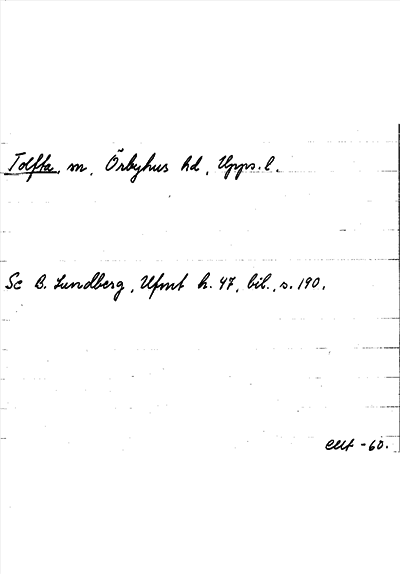 Tolfta, sn, Örbyhus hd, Upps. l.
Se B. Lundberg, Ufmt h. 47, bil., s. 190.
-60.